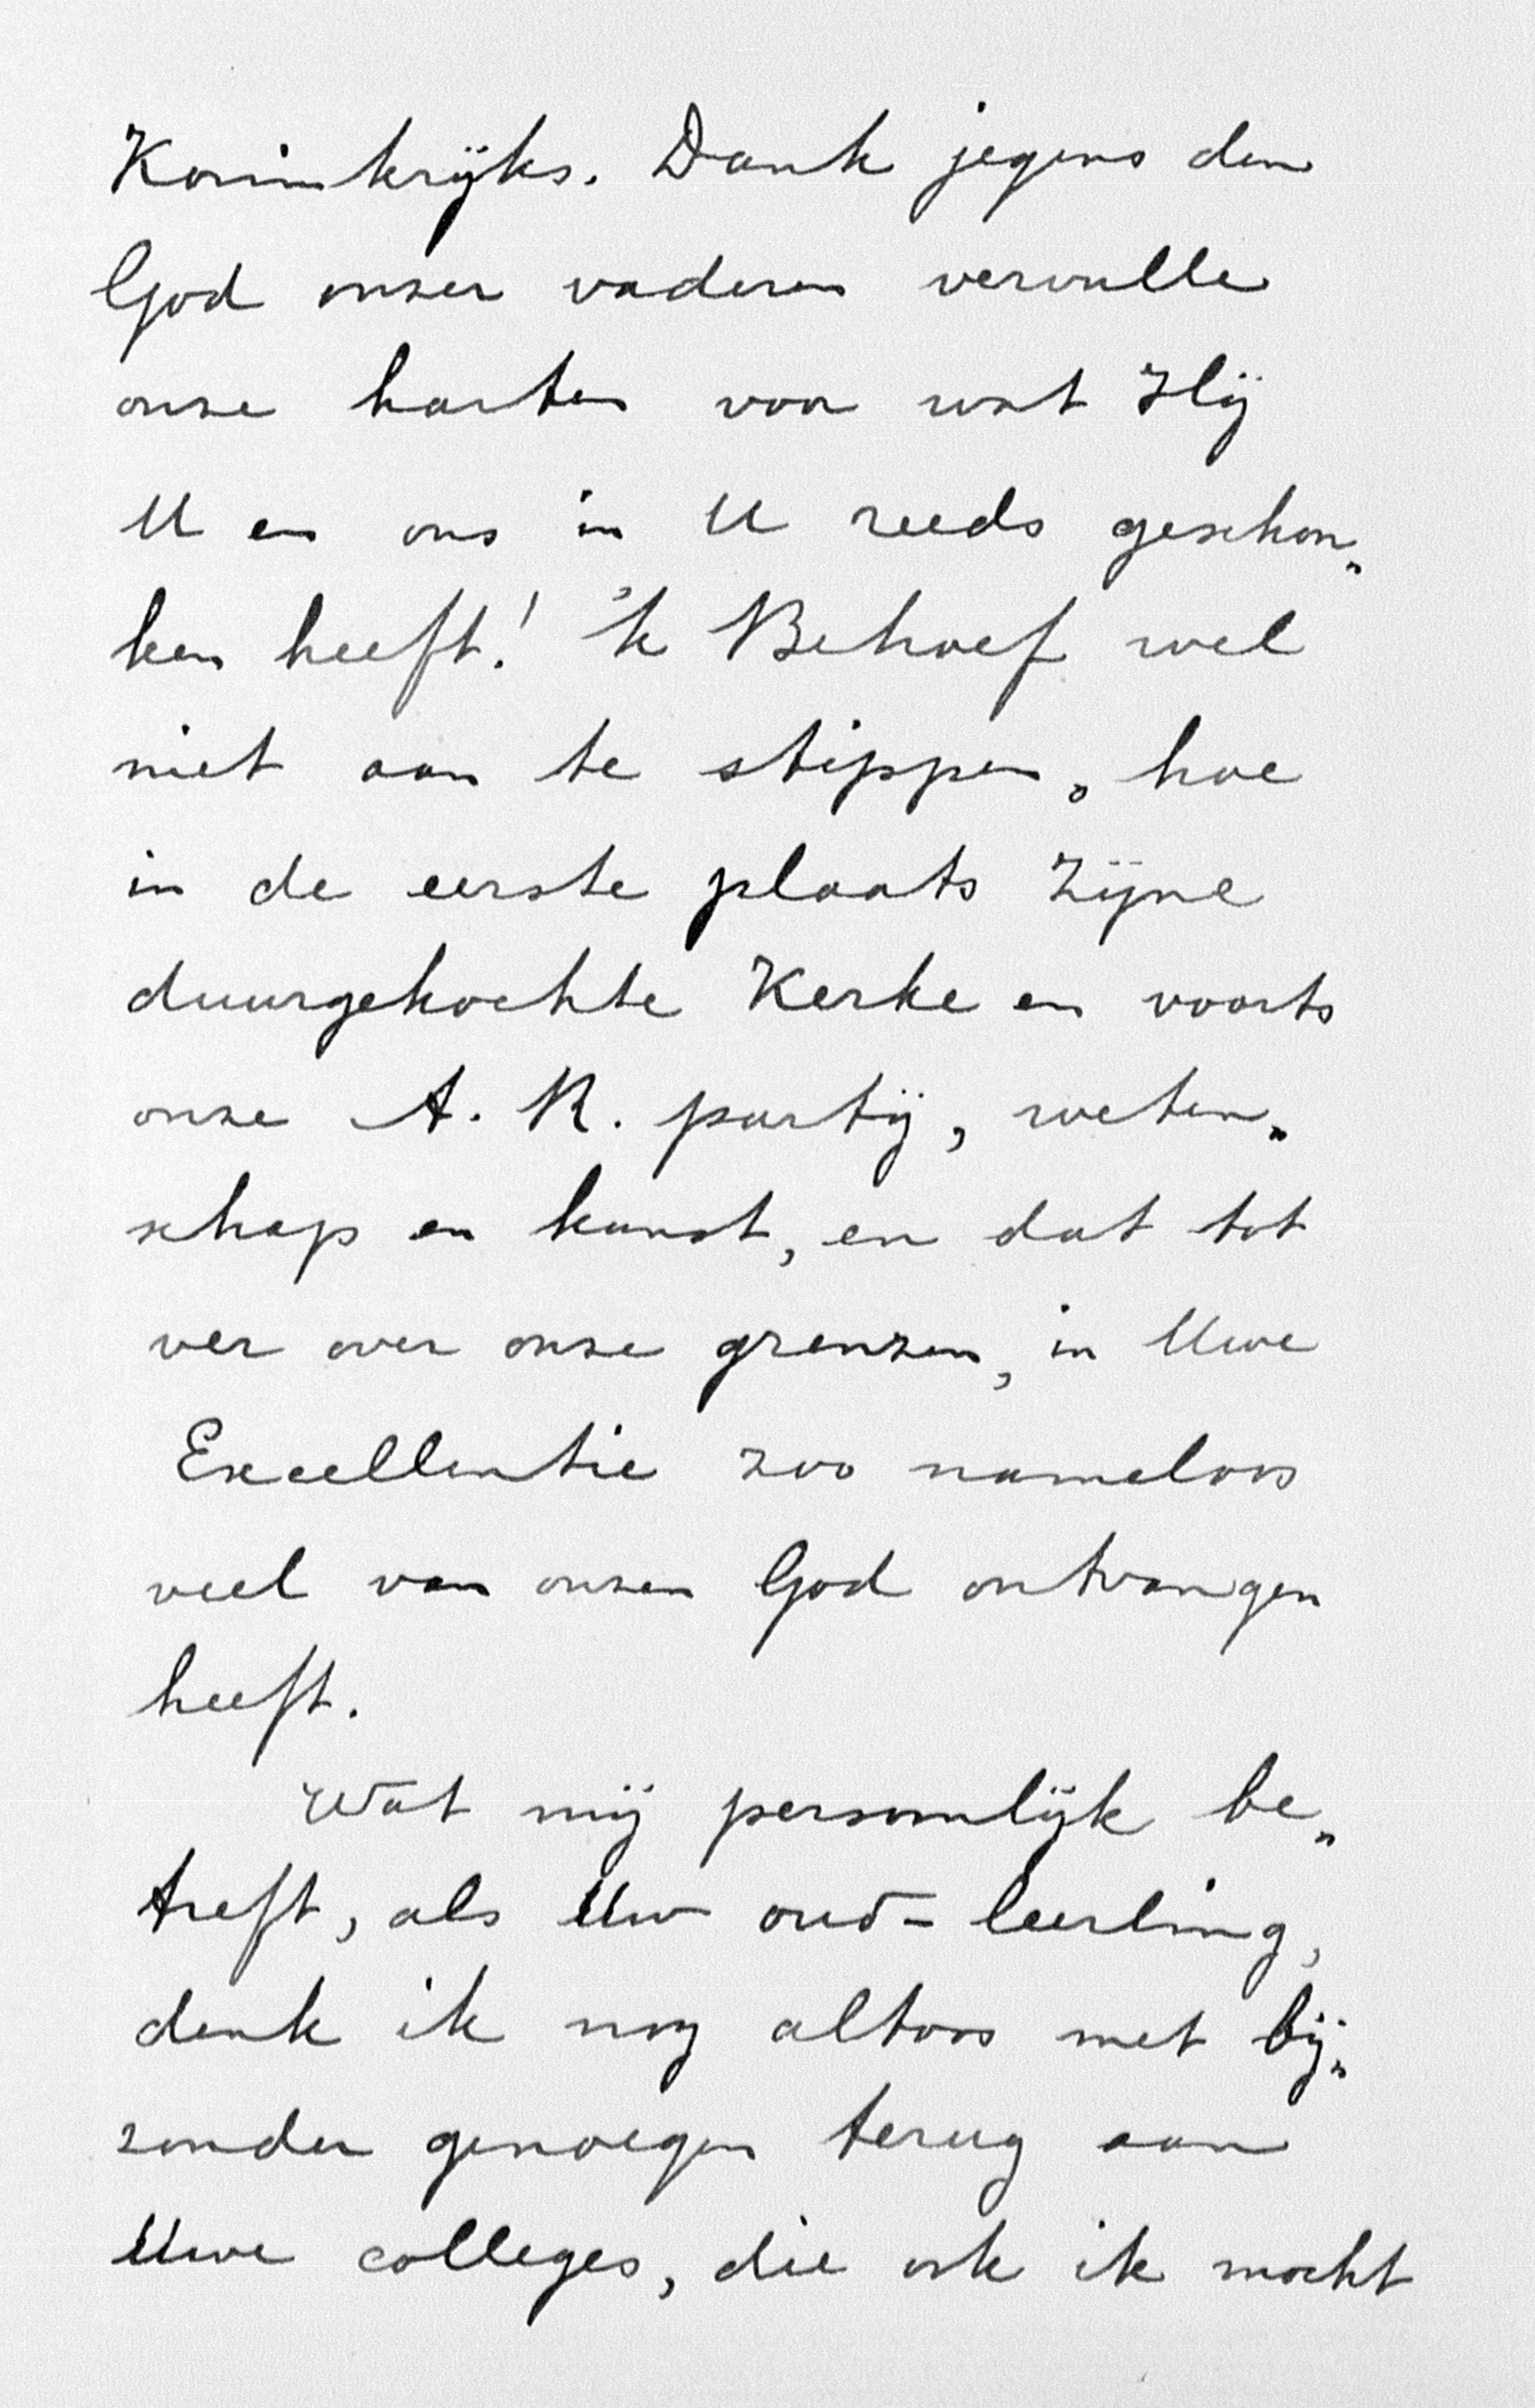 Koninkrijks. Dank jegens den
God onzer vaderen vervulle
onze harten voor wat Hij
U en ons in U reeds geschon„
ken heeft! 'k Behoef wel
niet aan te stippen, hoe
in de eerste plaats Zijne
duurgekochte Kerke en voorts
onze A. R. partij, weten„
schap en kunst, en dat tot
ver over onze grenzen, in Uwe
Excellentie zoo nameloos
veel van onzen God ontvangen
heeft.
Wat mij persoonlijk be„
treft, als Uw oud-leerling,
denk ik nog altoos met bij„
zonder genoegen terug aan
Uwe colleges, die ook ik mocht